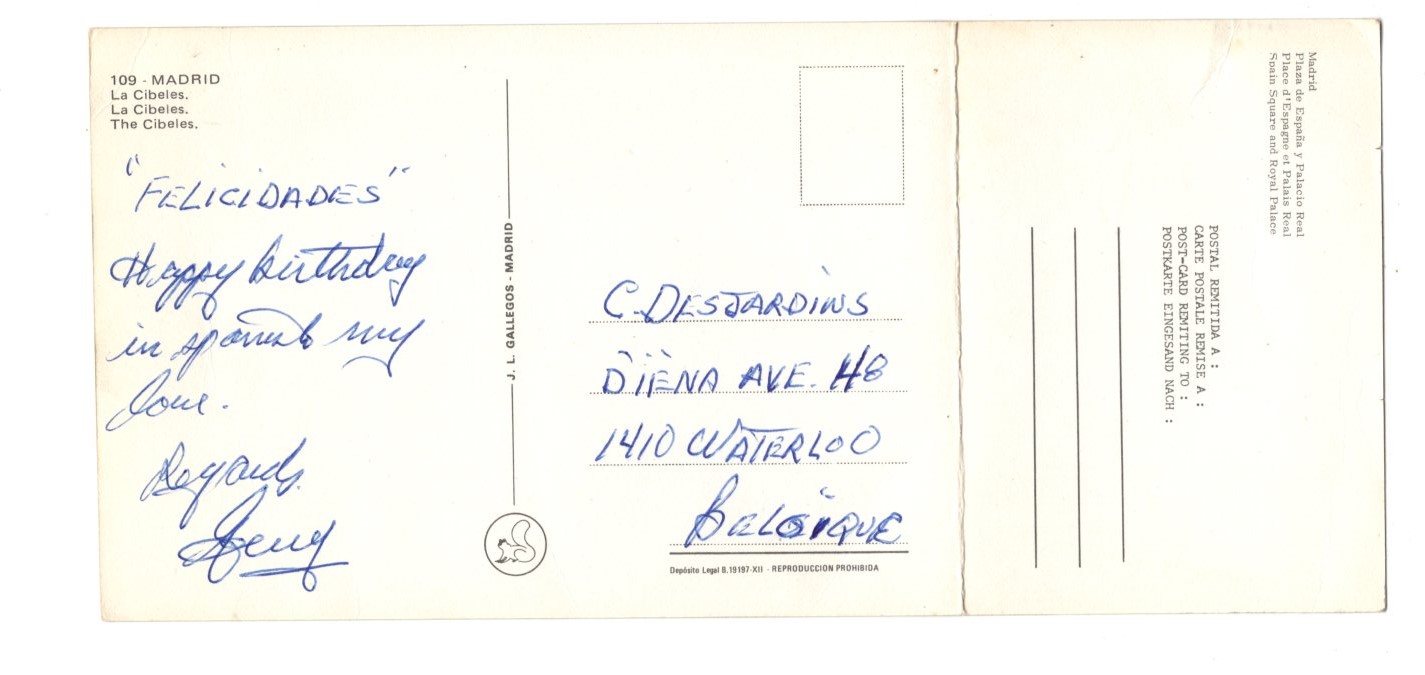 109 - MADRID
La Cibeles.
La Cibeles.
The Cibeles.
"FELICIDADES"
Happy Birthday
in spanish my
love.
Regards
J. L. GALLEGOS - MADRID
C. DESJARDINS
AVE. 48
1410 WATERLOO
BELGIQUE
Depósito Legal B. 19197-XII - REPRODUCCION PROHIBIDA
POSTAL REMITIDA A :
CARTE POSTALE REMISE A :
POST-CARD REMITING TO :
POSTKARTE EINGESAND NACH :
Madrid
Plaza de España y Palacio Real
Place d'Espagne et Palais Real
Spain Square and Royal Palace